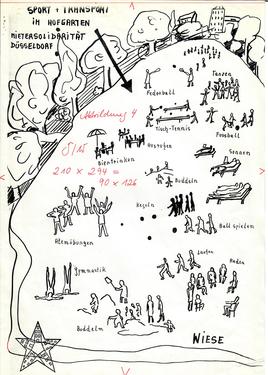 SPORT + TRANSPORT
IM HOFGARTEN
MIETERSOLIDARITÄT
DÜSSELDORF
Abbildung 4
Federball
Tanzen
Tisch-Tennis
Fussball
Ausrufen
Biertrinken
Sonnen
210 x 294 =
90 x 126
Buddeln
Kegeln
Ball spielen
Atemübungen
Laufen
Reden
Gymnastik
Buddeln
WIESE